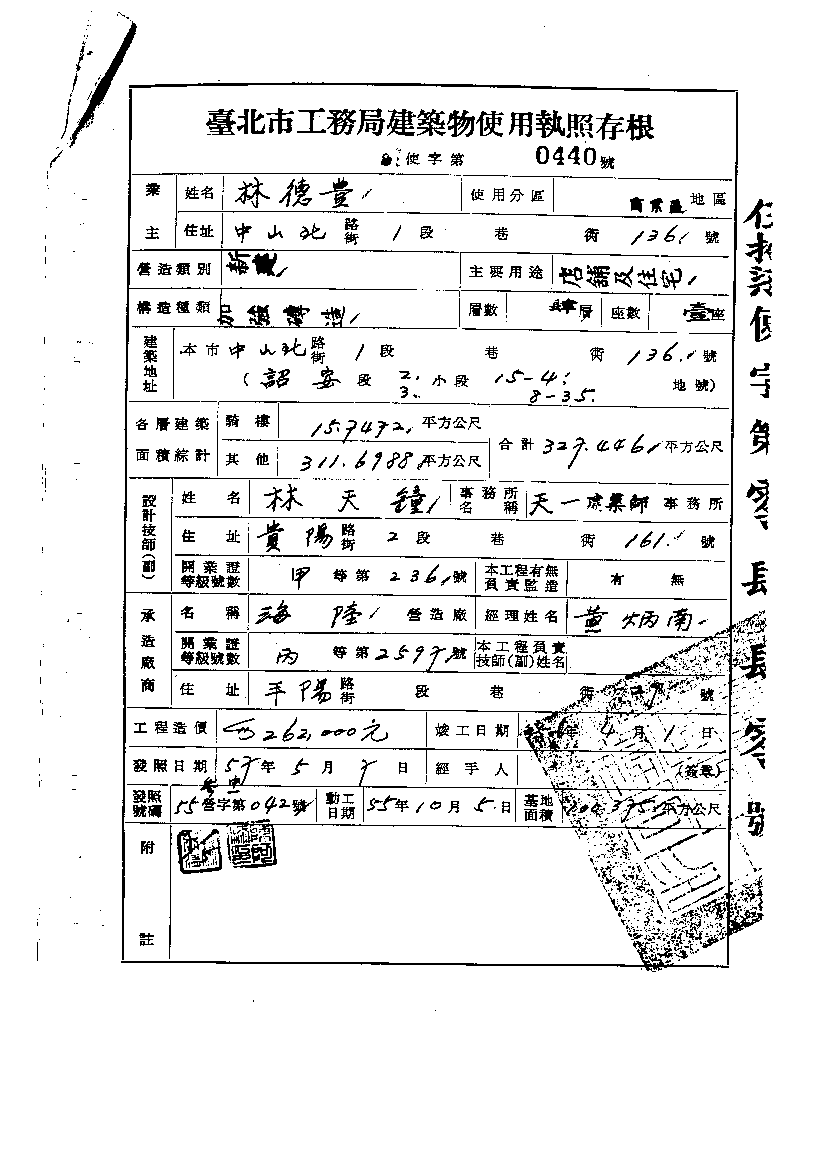 臺北市工務局建築物使用執照存根
使字第 0440 號
業主 姓名 林德貴 使用分區 商業區 地區
住址 中山北路街 1 段 巷 街 136 號
營造類別 新建 主要用途 店舖及住宅
構造種類 加強磚造 層數 肆層 座數 壹座
建築地址 本市中山北路街 1 段 巷 街 136 號
(詔安段 2. 3. 小段 15-4. 8-35. 地號)
各層建築面積綜計 騎樓 15.7472 平方公尺 合計 327.446 平方公尺
其他 311.6988 平方公尺
設計技師(副) 姓名 林天鐘 事務所名稱 天一建築師事務所
住址 貴陽路街 2 段 巷 街 161 號
開業證等級號數 甲等第 236 號 本工程有無負責監造 有 無
承造廠商 名稱 海陸 營造廠 經理姓名 黃炳南
開業證等級號數 丙等第 259 號 本工程負責技師(副)姓名
住址 平陽路街 段 巷 街 號
工程造價 262,000元 竣工日期 年 4 月 1 日
發照日期 57年 5 月 7 日 經手人 (簽章)
發照號碼 55 營字第 042 號 動工日期 55年10月5日 基地面積 平方公尺
附註
使字第零肆肆零號